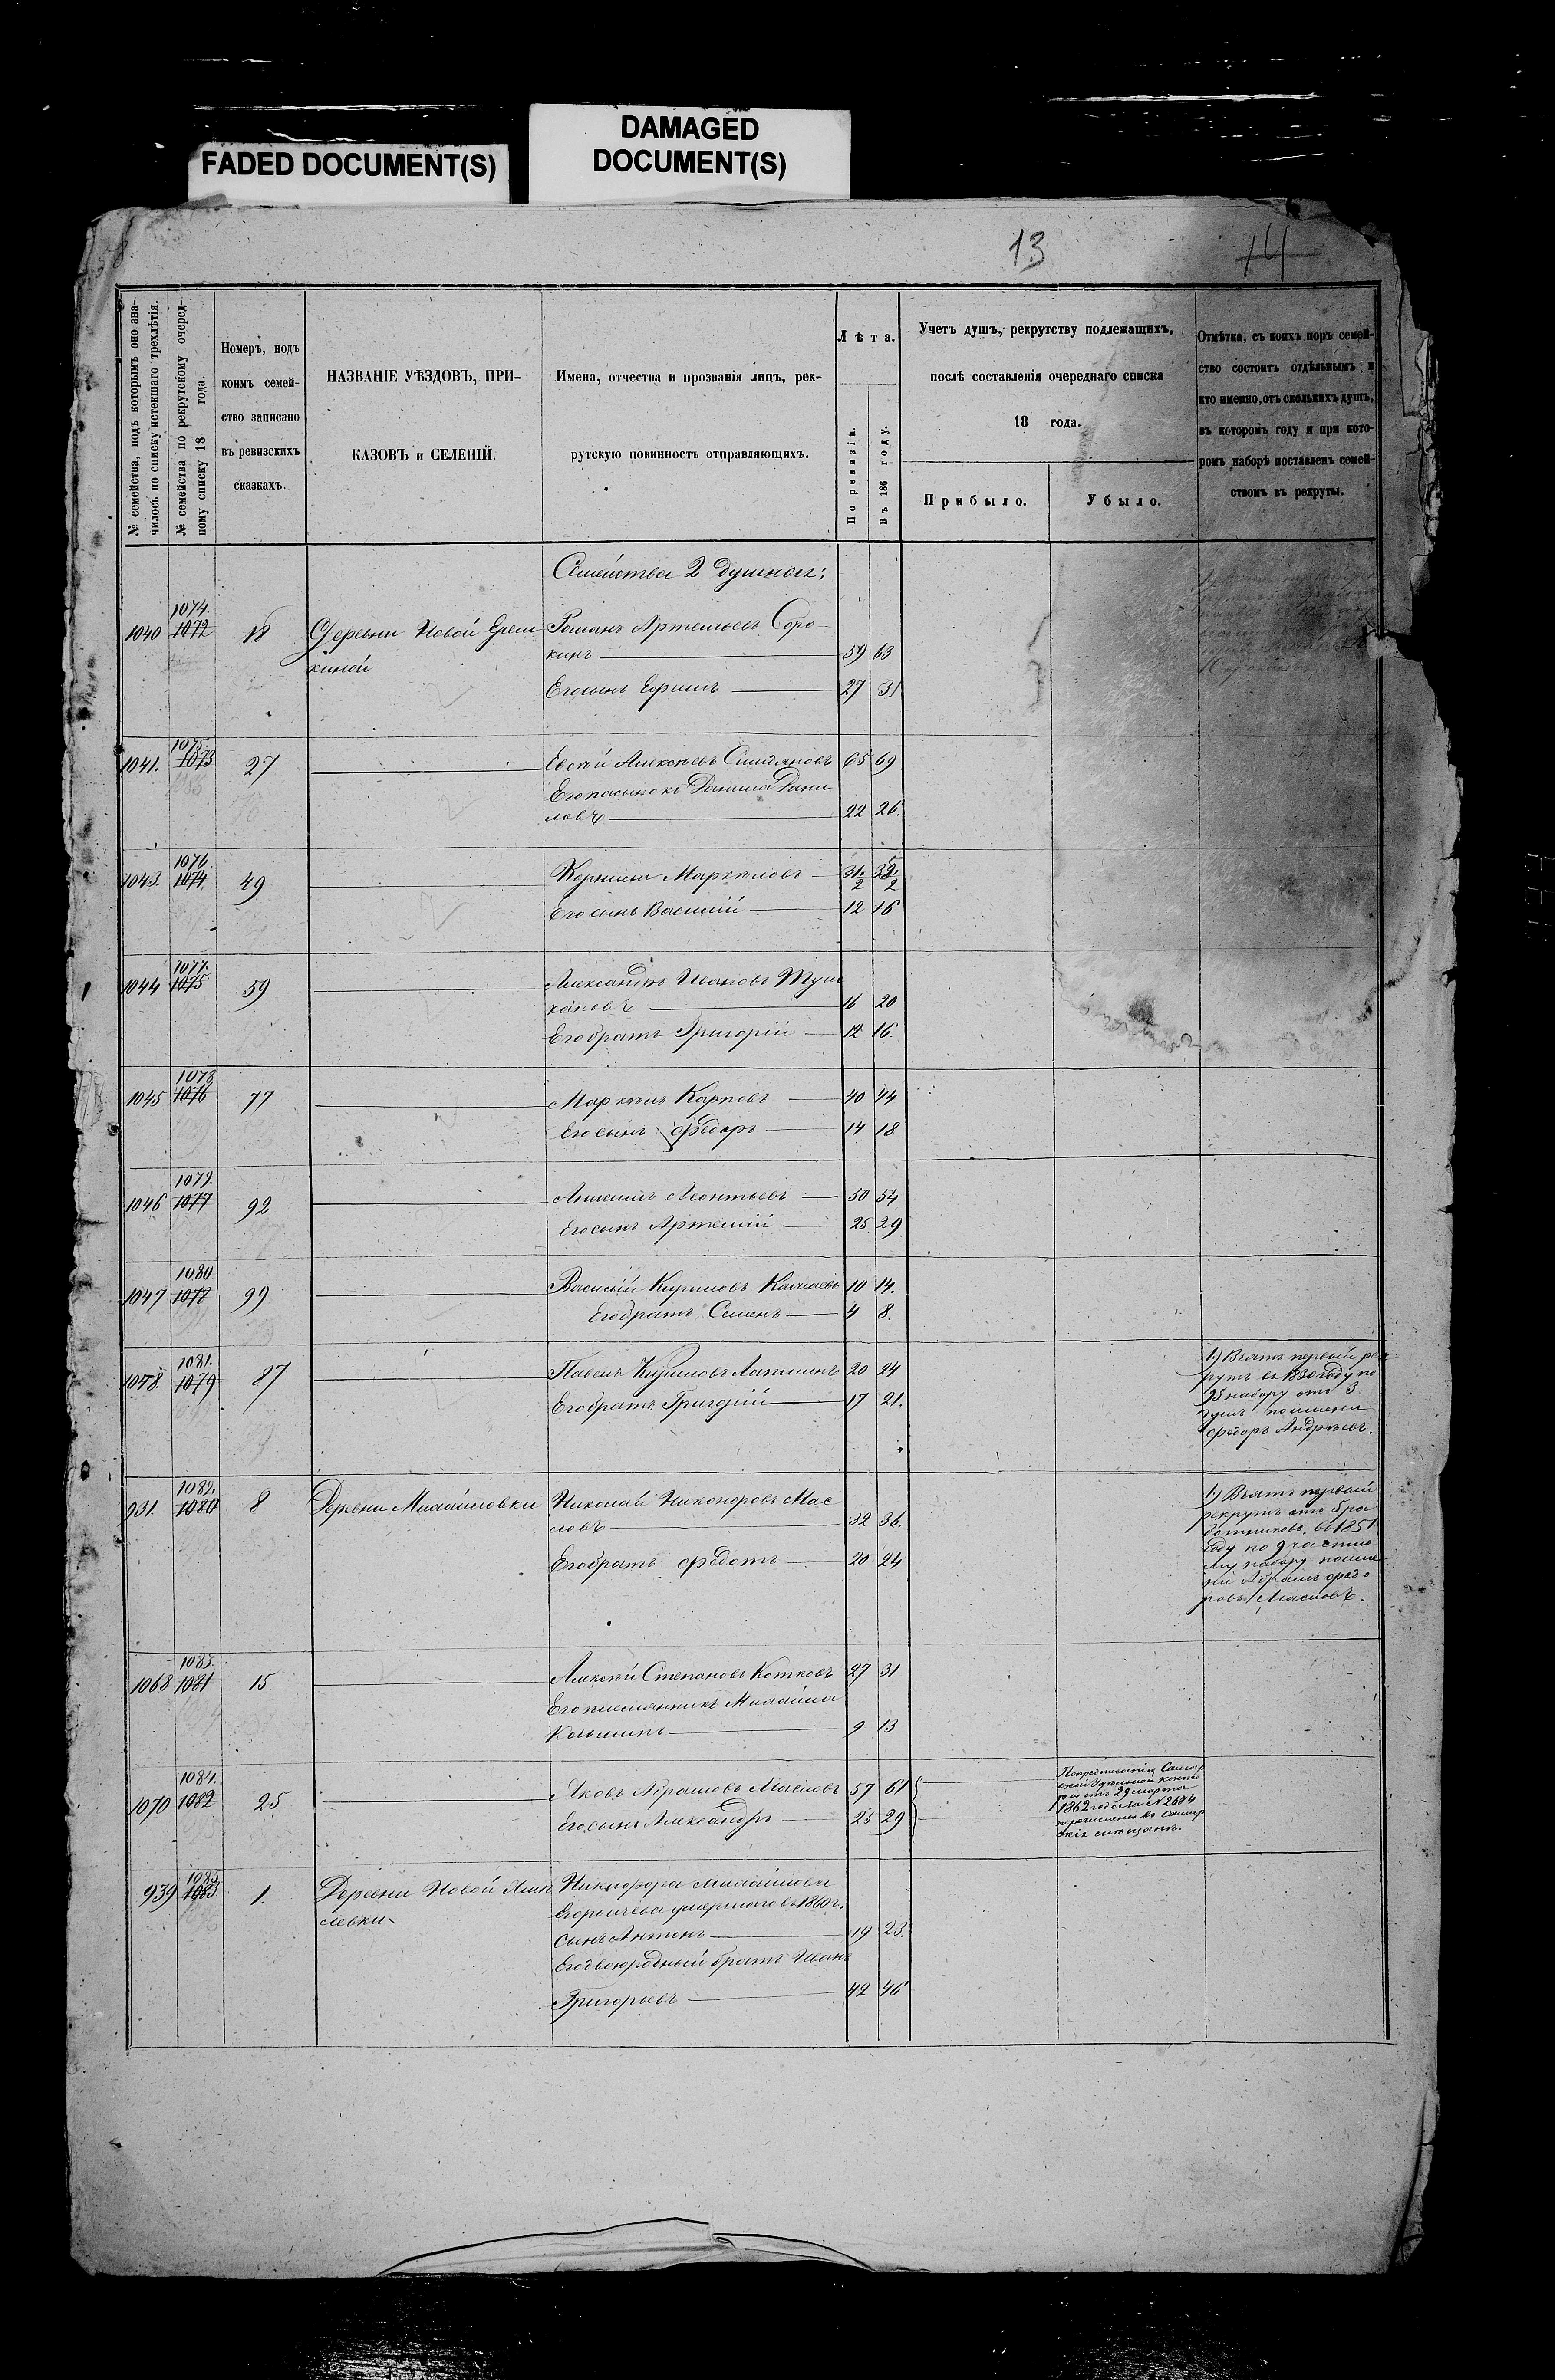 FADED DOCUMENT(S)
DAMAGED
DOCUMENT(S)
13
14
№ семейства, подъ которымъ оно зна-
чилось по списку истекшаго трехлѣтія.
№ семейства по рекрутскому очеред-
ному списку 18 года.
Номеръ, подъ
коимъ семей-
ство записано
въ ревизскихъ
сказкахъ.
НАЗВАНІЕ УѢЗДОВЪ, ПРИ-
КАЗОВЪ и СЕЛЕНІЙ.
Имена, отчества и прозванія лицъ, рек-
рутскую повинность отправляющихъ.
Лѣта.
По ревизіи.
Въ 186 году.
Учетъ душъ, рекрутству подлежащихъ,
послѣ составленія очереднаго списка
18 года.
Прибыло.
Убыло.
Отмѣтка, съ коихъ поръ семей-
ство состоитъ отдѣльнымъ и
кто именно, отъ сколькихъ душъ,
въ которомъ году и при кото-
ромъ наборѣ поставленъ семей-
ствомъ въ рекруты.
Семейства 2 душныя:
1074.
1040 1072 18 Деревни Новой Ерем Романъ Артемьевъ Соро-
киной кинъ 59 63
Его сынъ Ефимъ 27 31
1075.
1041. 1073 27 Евсѣй Алексѣевъ 65 69
Его пасынокъ Данила Дани
ловъ 22 26.
1076.
1043. 1074 49 Корнила Маркеловъ 31. 2 35. 2
Его сынъ Василій 12 16
1077.
1044 1075 59 Александръ Ивановъ Туш
кановъ 16 20
Его братъ Григорій 12 16.
1078
1045 1076 77 Маркелъ Карповъ 40 44
Его сынъ Федоръ 14 18
1079.
1046 1077 92 Леонтьевъ 50 54
Его сынъ Артемій 25 29
1080
1047 1078 99 Василій Кириловъ 10 14.
Его братъ Семенъ 4 8.
1081.
1048. 1079 87 Павелъ Кириловъ Лапшинъ 20 24
Его братъ Григорій 17 21.
1) Взятъ первый рек
рутъ въ году по
набору отъ 3
душъ по имени
Федоръ Андреевъ.
1082.
931. 1080 8 Деревни Михайловки Николай Никоноровъ Мас
ловъ 32 36.
Его братъ Федотъ 20 24
1) Взятъ первый
рекрутъ отъ 5 ра
ботниковъ въ 1851
году по 9 частно
му набору по име
ни Абрамъ Федо
ровъ Масловъ.
1083.
1068 1081 15 Алексѣй Степановъ Котковъ 27 31
Его племянникъ Михайла
Козьминъ 9 13
1084.
1070 1082 25 Яковъ Абрамовъ Масловъ 57 61
Его сынъ Александръ 25 29
По предписанію Самар
ской Удѣльной конто
ры отъ 29 марта
1862 года за № 2684
перечислены въ Самар
скіе мѣщане.
1085.
939 1083 1. Деревни Новой Никифора Михайлова
Егорычева умершаго въ 1860 г.
сынъ Антонъ 19 23.
Его двоюродный братъ Иванъ
Григорьевъ 42 46